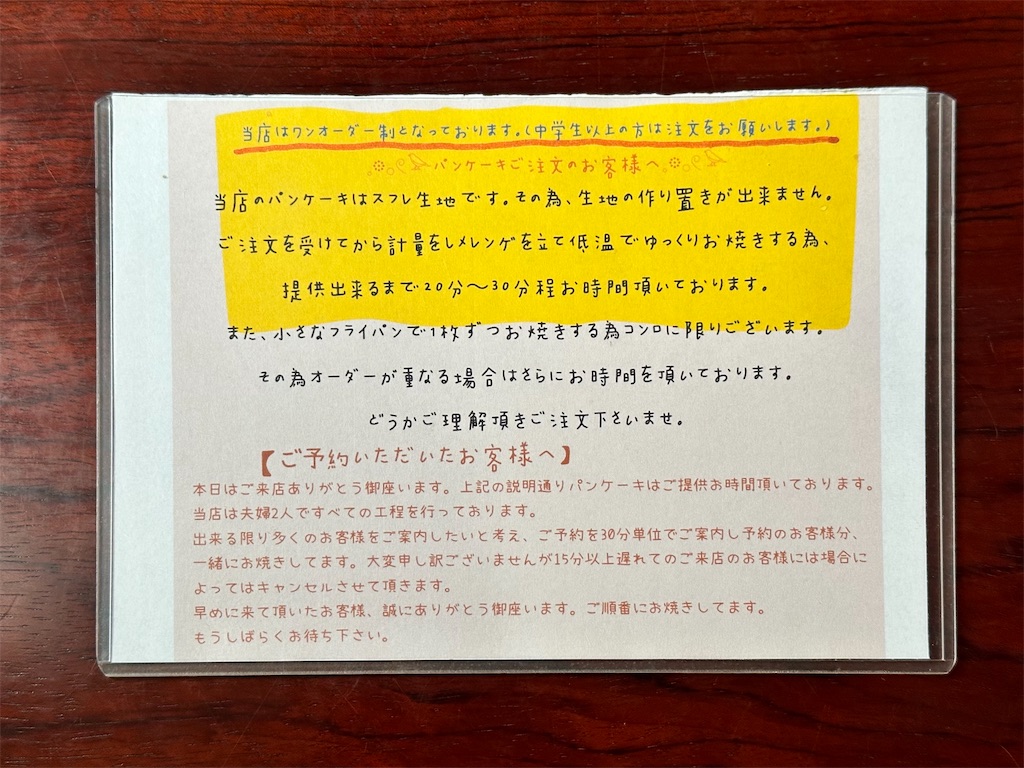 当店はワンオーダー制となっております。(中学生以上の方は注文をお願いします。)
パンケーキご注文のお客様へ
当店のパンケーキはスフレ生地です。その為、生地の作り置きが出来ません。
ご注文を受けてから計量をしメレンゲを立て低温でゆっくりお焼きする為、
提供出来るまで20分〜30分程お時間頂いております。
また、小さなフライパンで1枚ずつお焼きする為コンロに限りございます。
その為オーダーが重なる場合はさらにお時間を頂いております。
どうかご理解頂きご注文下さいませ。
【ご予約いただいたお客様へ】
本日はご来店ありがとう御座います。上記の説明通りパンケーキはご提供お時間頂いております。
当店は夫婦2人ですべての工程を行っております。
出来る限り多くのお客様をご案内したいと考え、ご予約を30分単位でご案内し予約のお客様分、
一緒にお焼きしてます。大変申し訳ございませんが15分以上遅れてのご来店のお客様には場合に
よってはキャンセルさせて頂きます。
早めに来て頂いたお客様、誠にありがとう御座います。ご順番にお焼きしてます。
もうしばらくお待ち下さい。